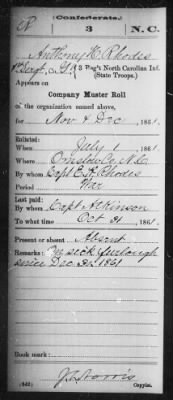 Confederate.
R 3 N.C.
Anthony H. Rhodes
Sergt, Co. G, 3 Reg't North Carolina Inf.
(State Troops.)
Appears on
Company Muster Roll
of the organization named above,
for Nov & Dec, 1861.
Enlisted:
When July 1 1861
Where Onslow Co. N.C.
By whom Capt E. H. Rhodes
Period War
Last paid:
By whom Capt Atkinson
To what time Oct 31, 1861.
Present or absent Absent
Remarks: On sick furlough
since Dec. 21, 1861
Book mark:
(642)
Copyist.